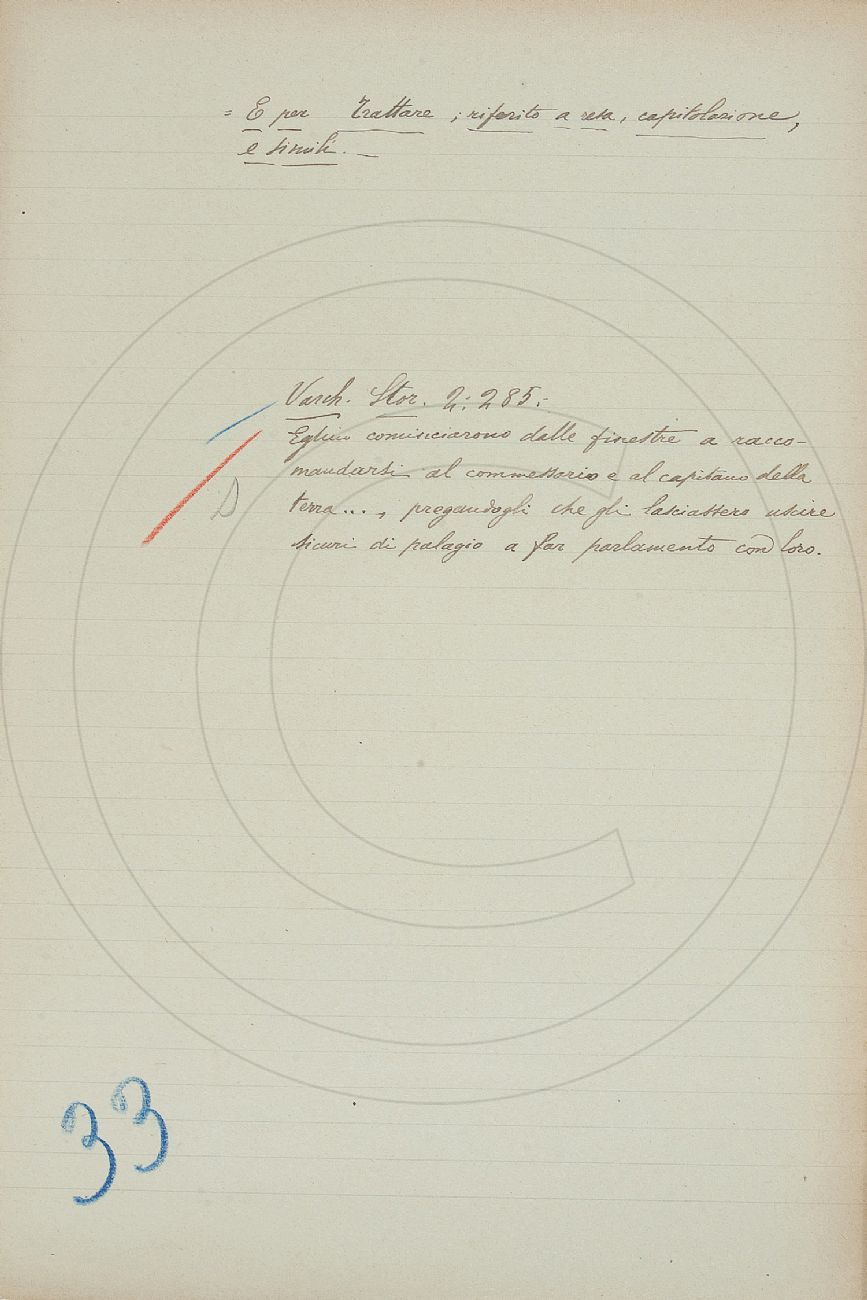 = E per Trattare ; riferito a resa, capitolazione,
e simili. —
Varch. Stor. 2: 285:
Eglino cominciarono dalle finestre a racco-
mandarsi al commessario e al capitano della
terra..., pregandogli che gli lasciassero uscire
sicuri di palagio a far parlamento con loro.
33